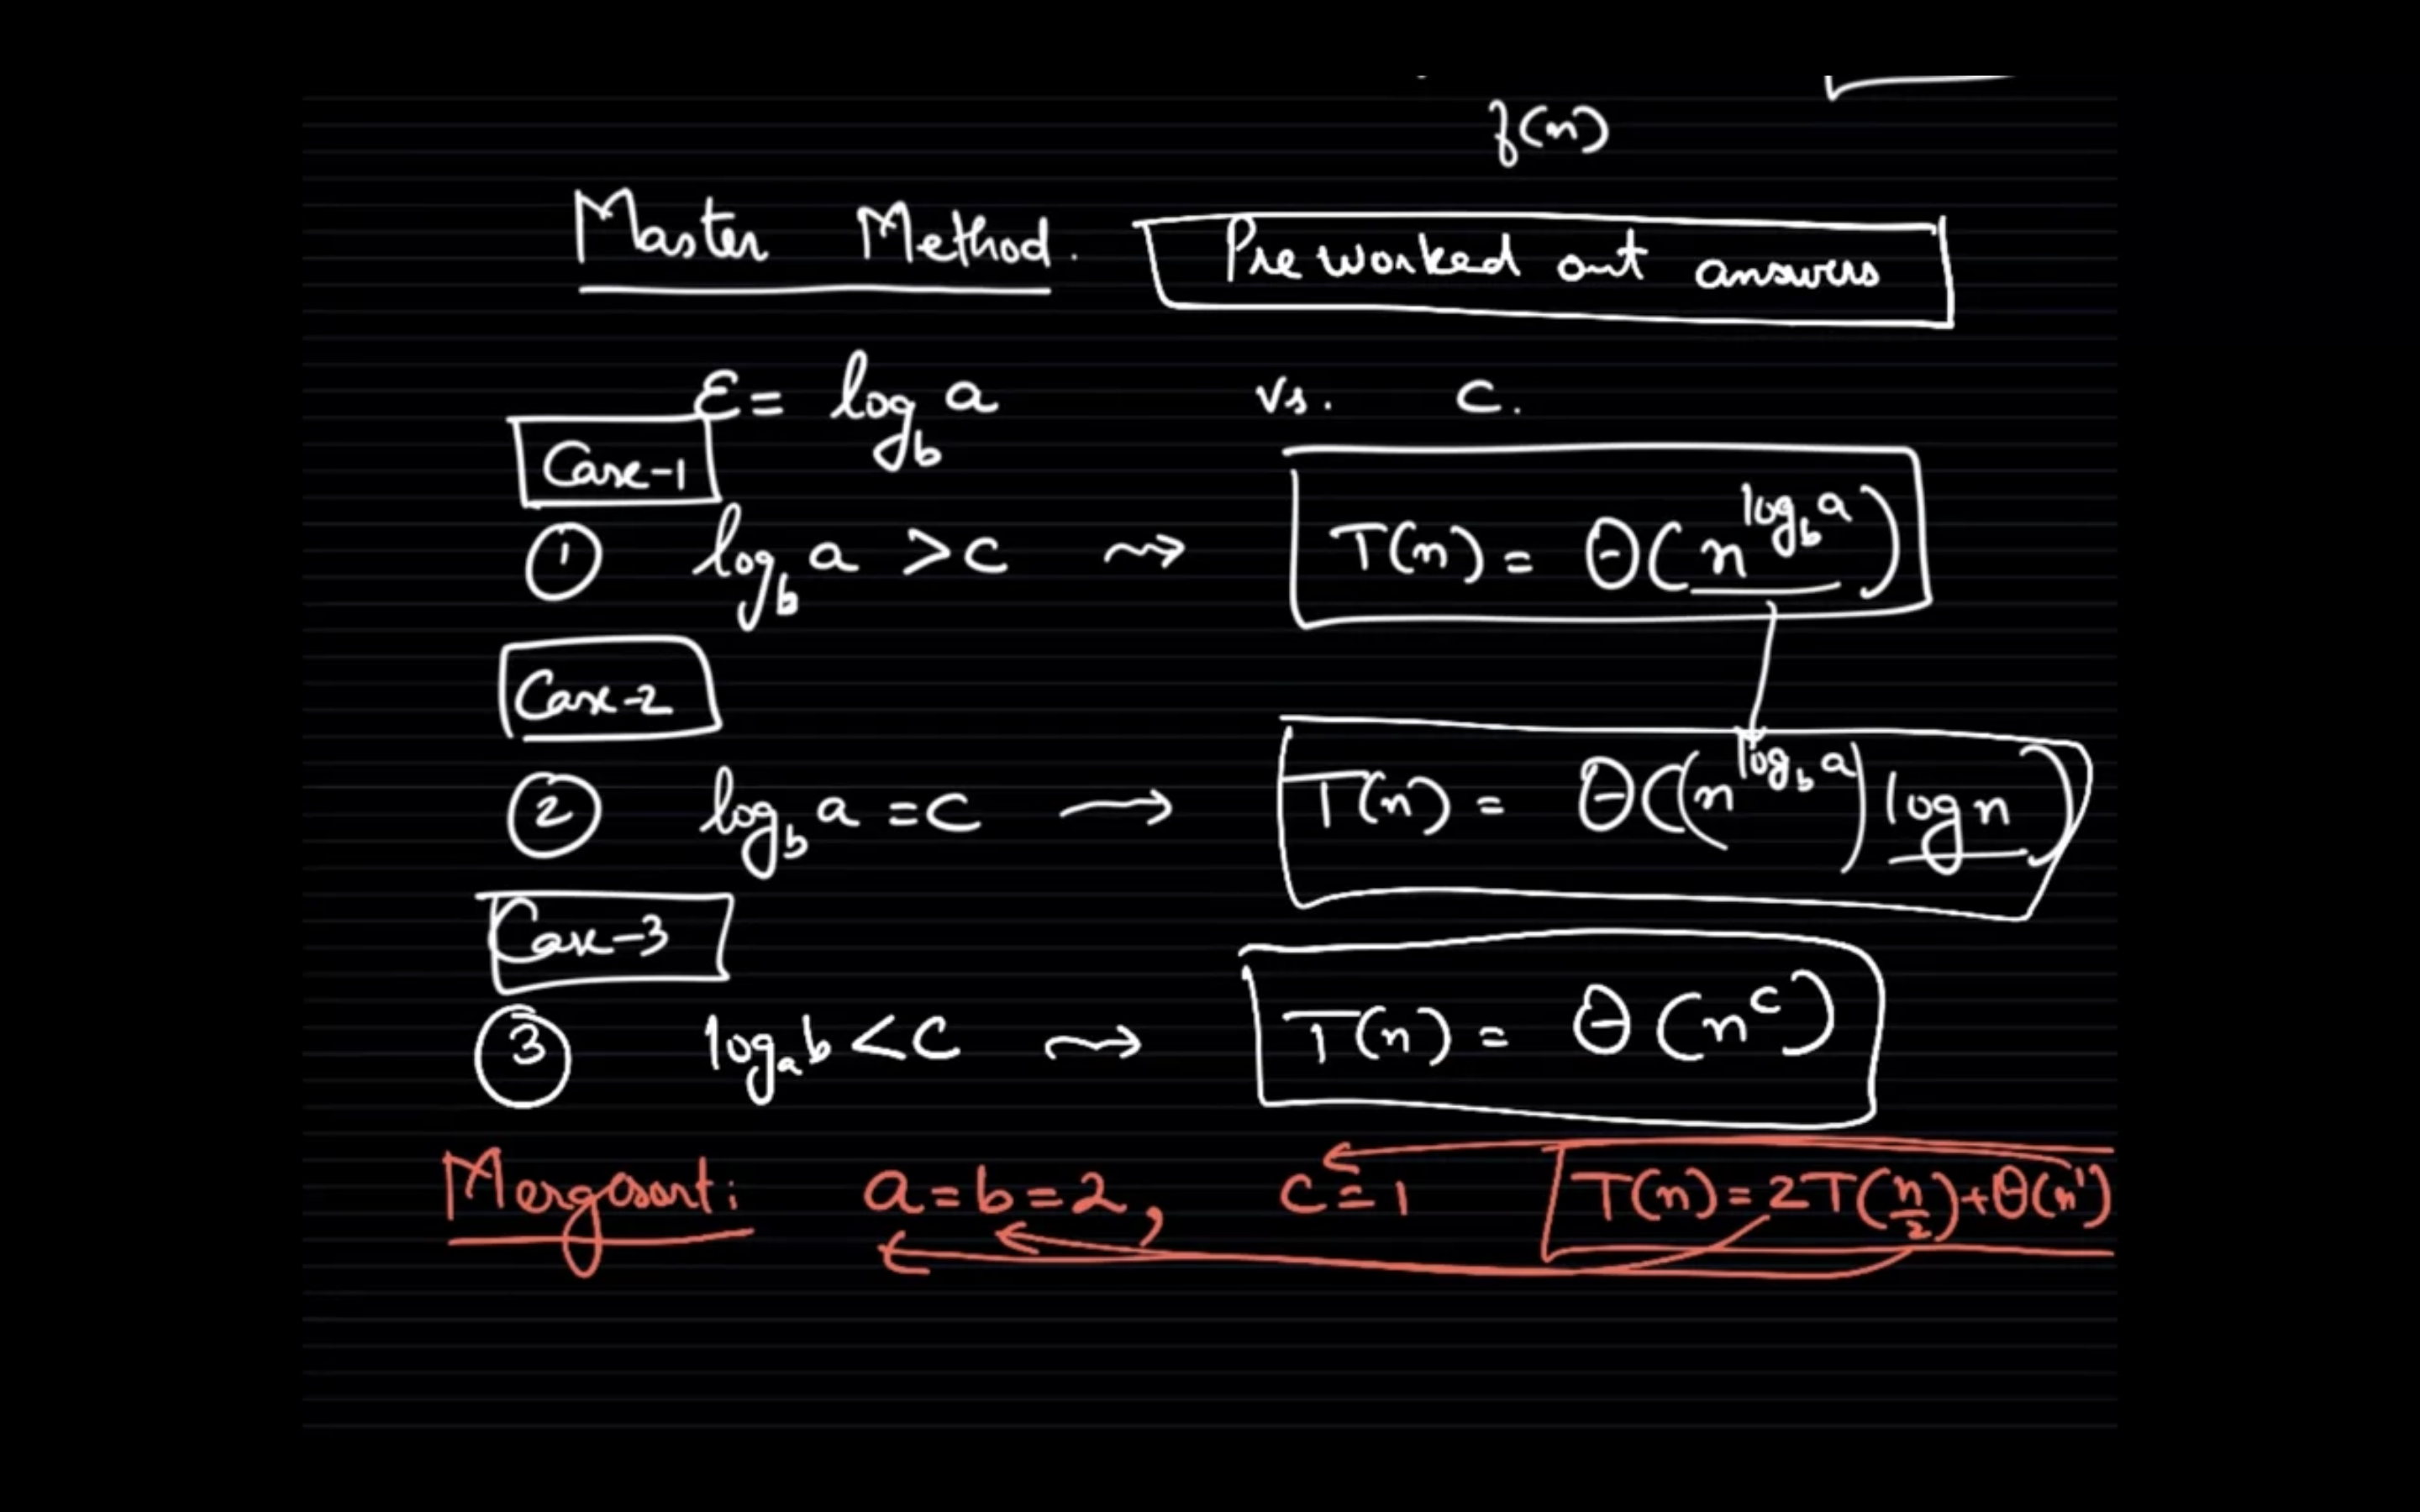 f(n)
Master Method. Pre worked out answers
ε = log_b a vs. c.
Case-1
① log_b a > c ⇝ T(n) = Θ(n^{log_b a})
Case-2
② log_b a = c → T(n) = Θ((n^{log_b a}) log n)
Case-3
③ log_a b < c ⇝ T(n) = Θ(n^c)
Mergesort: a = b = 2, c = 1 T(n) = 2T(n/2) + Θ(n^1)